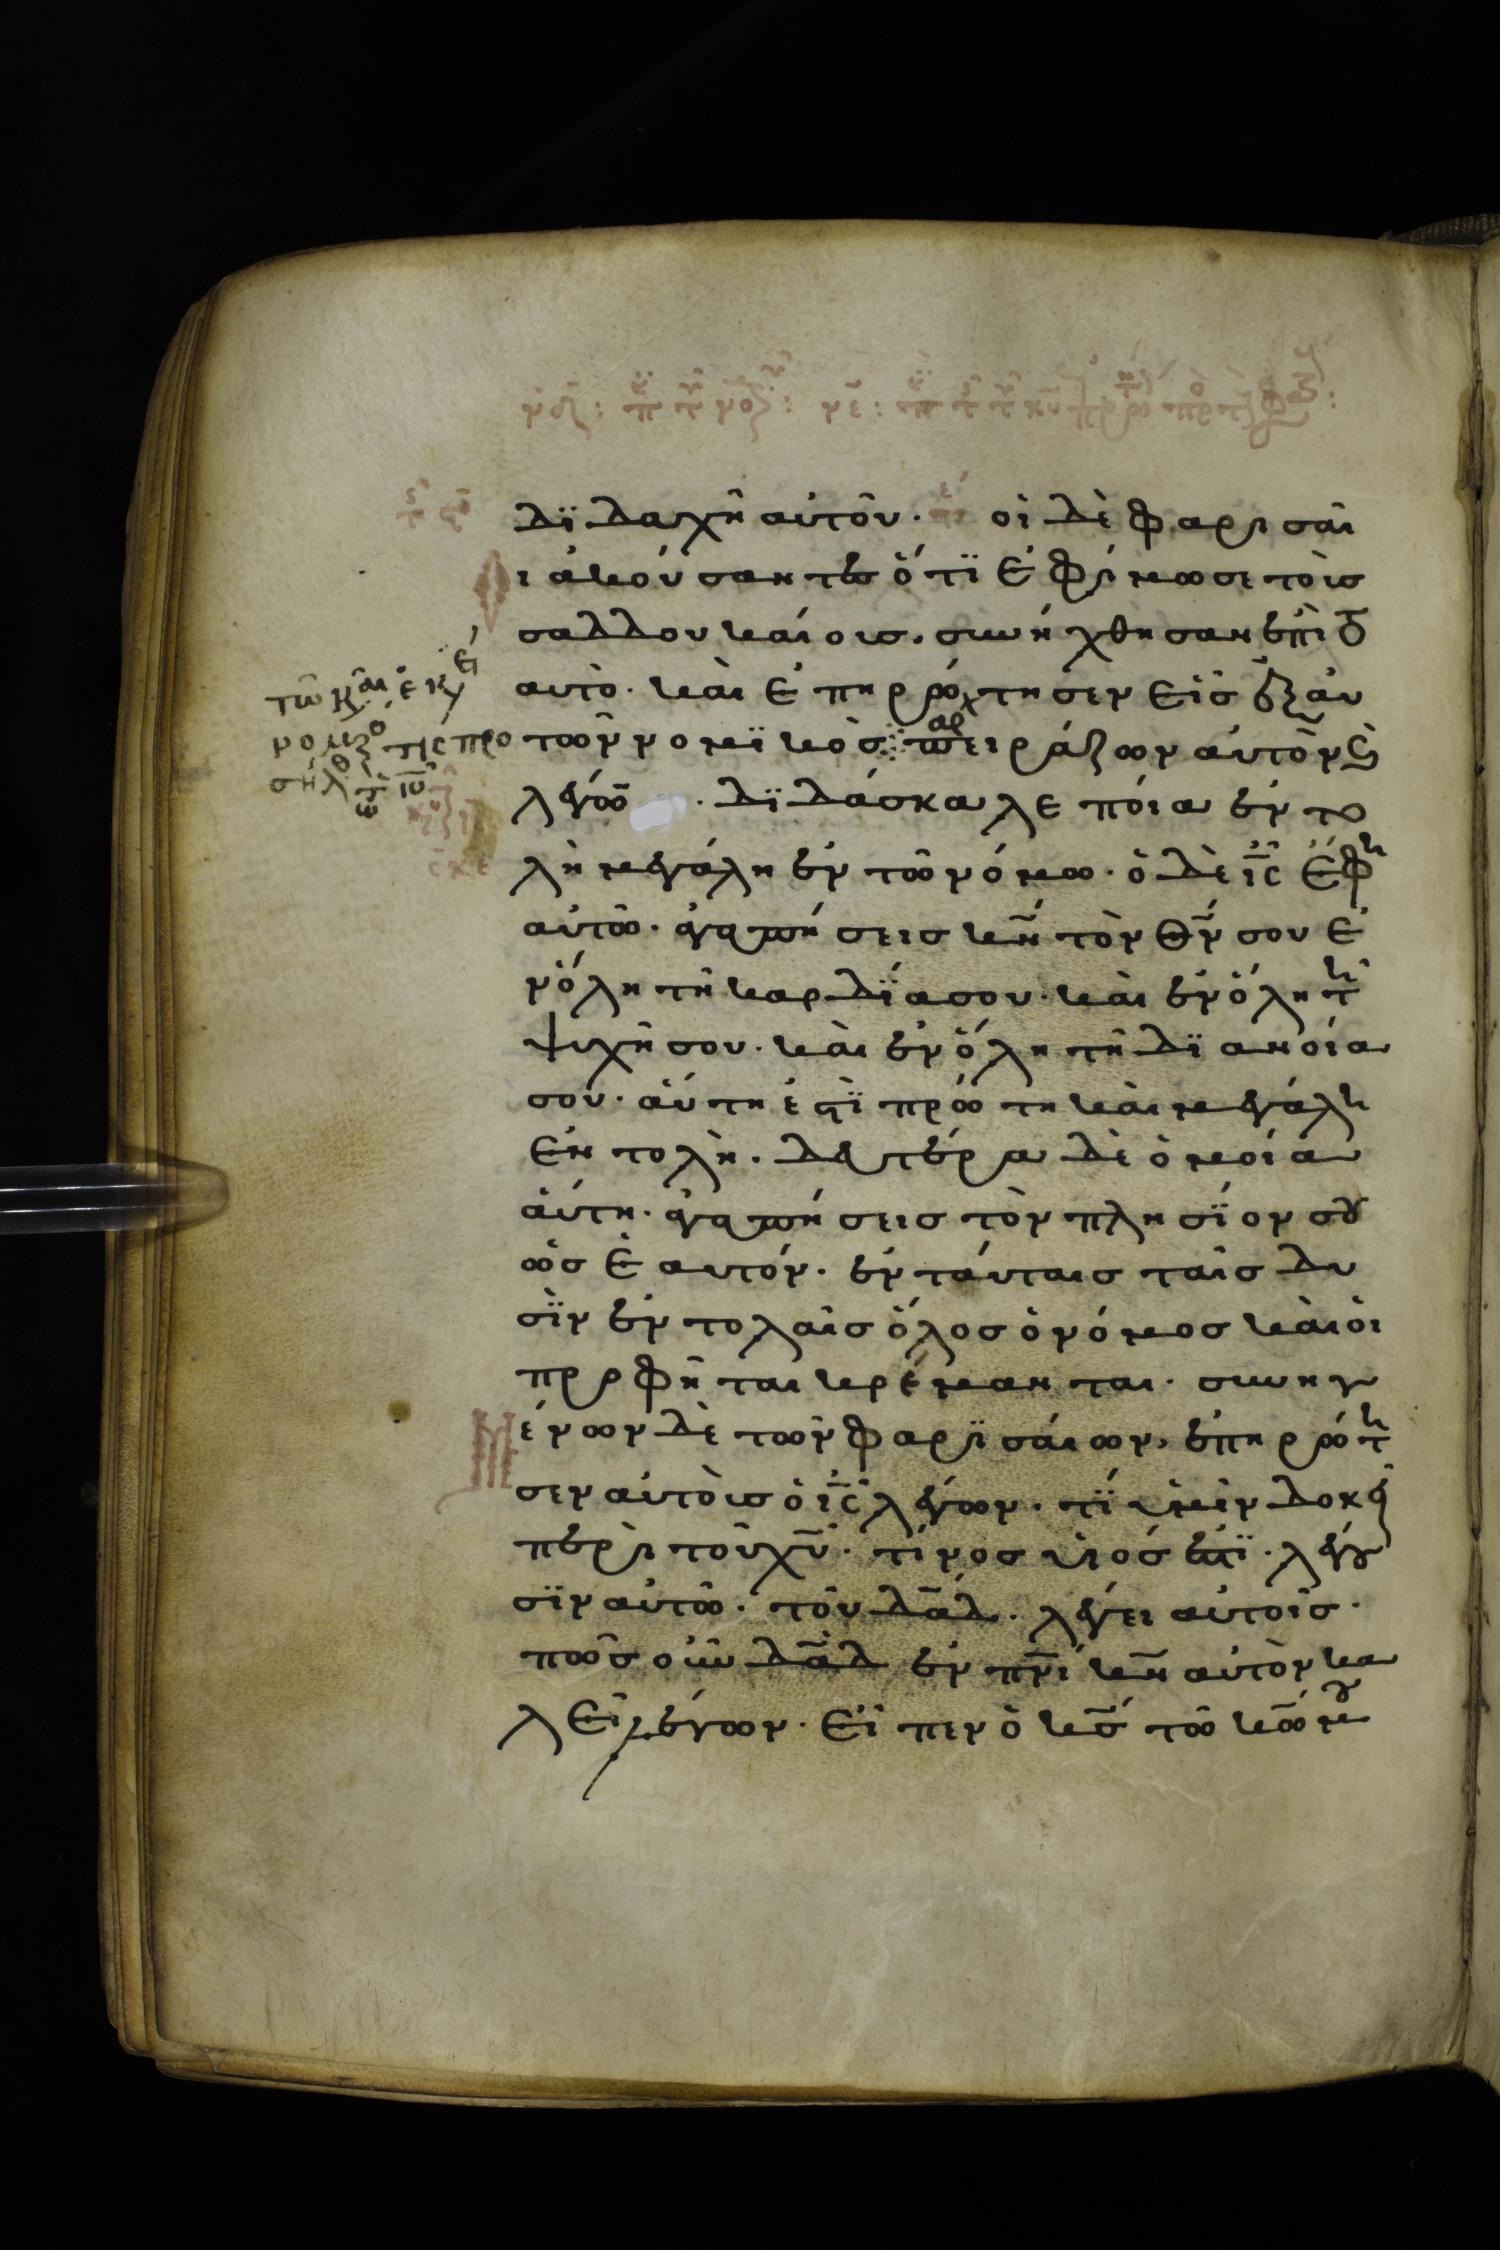 διδαχῆ αὐτοῦ. οἱ δὲ φαρισαῖ
οι ἀκούσαντες ὅτϊ ἐφίμωσε τοὺς
σαδδουκαίους. συνήχθησαν ἐπὶ τὸ
αυτὸ. καὶ ἐπηρρώτησεν εἷς ἐξ αὐ
τῶν νομϊκὸς πειράζων αὐτὸν κὶ
λέγων . δϊδάσκαλε ποία ἐν το
λὴ μεγάλη ἐν τῶ νόμω. ὁ δὲ ἰς ἔφη
αὐτῶ. ἀγαπήσεις κν τὸν θν σου ἐ
ν ὅλη τῆ καρδϊα σου. καὶ ἐν ὅλη τῆ
ψυχῆ σου. καὶ ἐν ὅλη τῆ δϊανοία
σου. αὕτη ἐστϊ πρώτη καὶ μεγάλη
ἐντολὴ. δευτέρα δὲ ὁμοία
αὐτῆ. ἀγαπήσεις τὸν πλησϊον σου
ὡς ἑαυτόν. ἐν ταύταις ταῖς δυ
σὶν ἐν τολαῖς ὅλος ὁ νόμος καὶ οἱ
προφῆται κρέμανται. συνηγ
μένων δὲ τῶν φαρϊσαίων, ἐπηρρώτη
σεν αὐτοὺς ὁ ἰς λέγων. τϊ ὑμῖν δοκεῖ
περὶ τοῦ χυ. τίνος υἱός ἐστϊ. λέγου
σϊν αὐτῶ. τοῦ δαδ. λέγει αὐτοῖς.
πῶς οὖν δαδ ἐν πνι κν αὐτὸν κα
λεῖ λέγων. εἶπεν ὁ κς τῶ κω μου